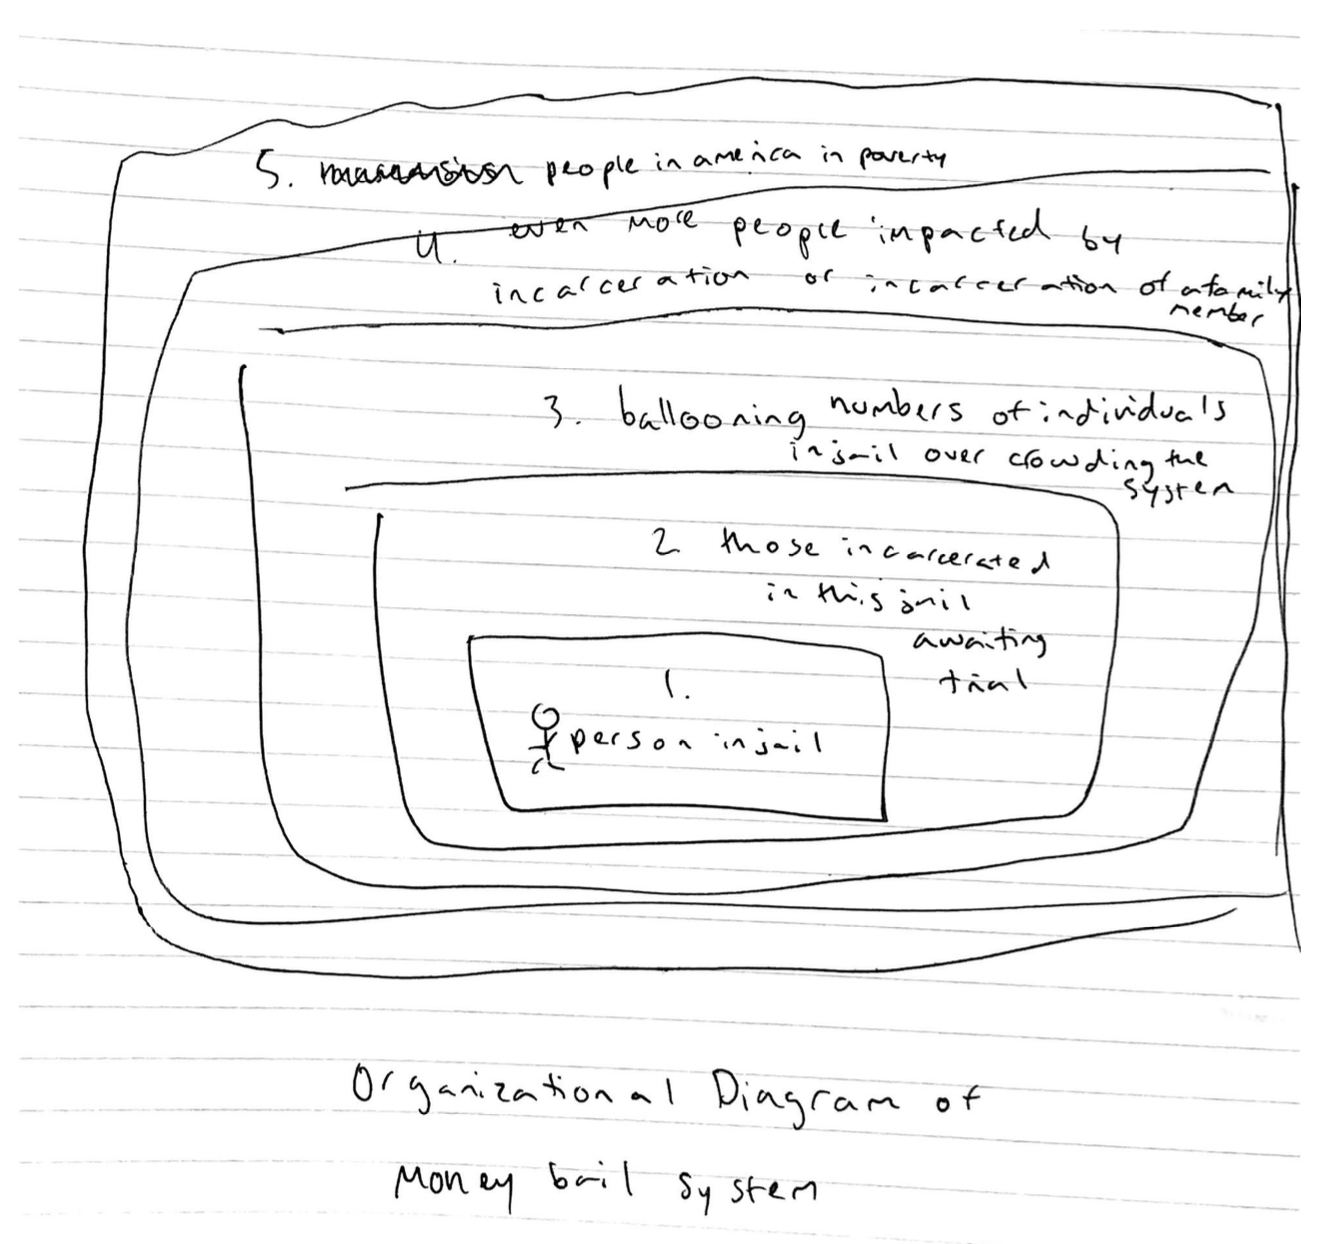 5. people in america in poverty
4. even more people impacted by
incarceration or incarceration of a family
member
3. ballooning numbers of individuals
in jail over crowding the
system
2 those incarcerated
in this jail
awaiting
trial
1.
person in jail
Organizational Diagram of
Money bail system